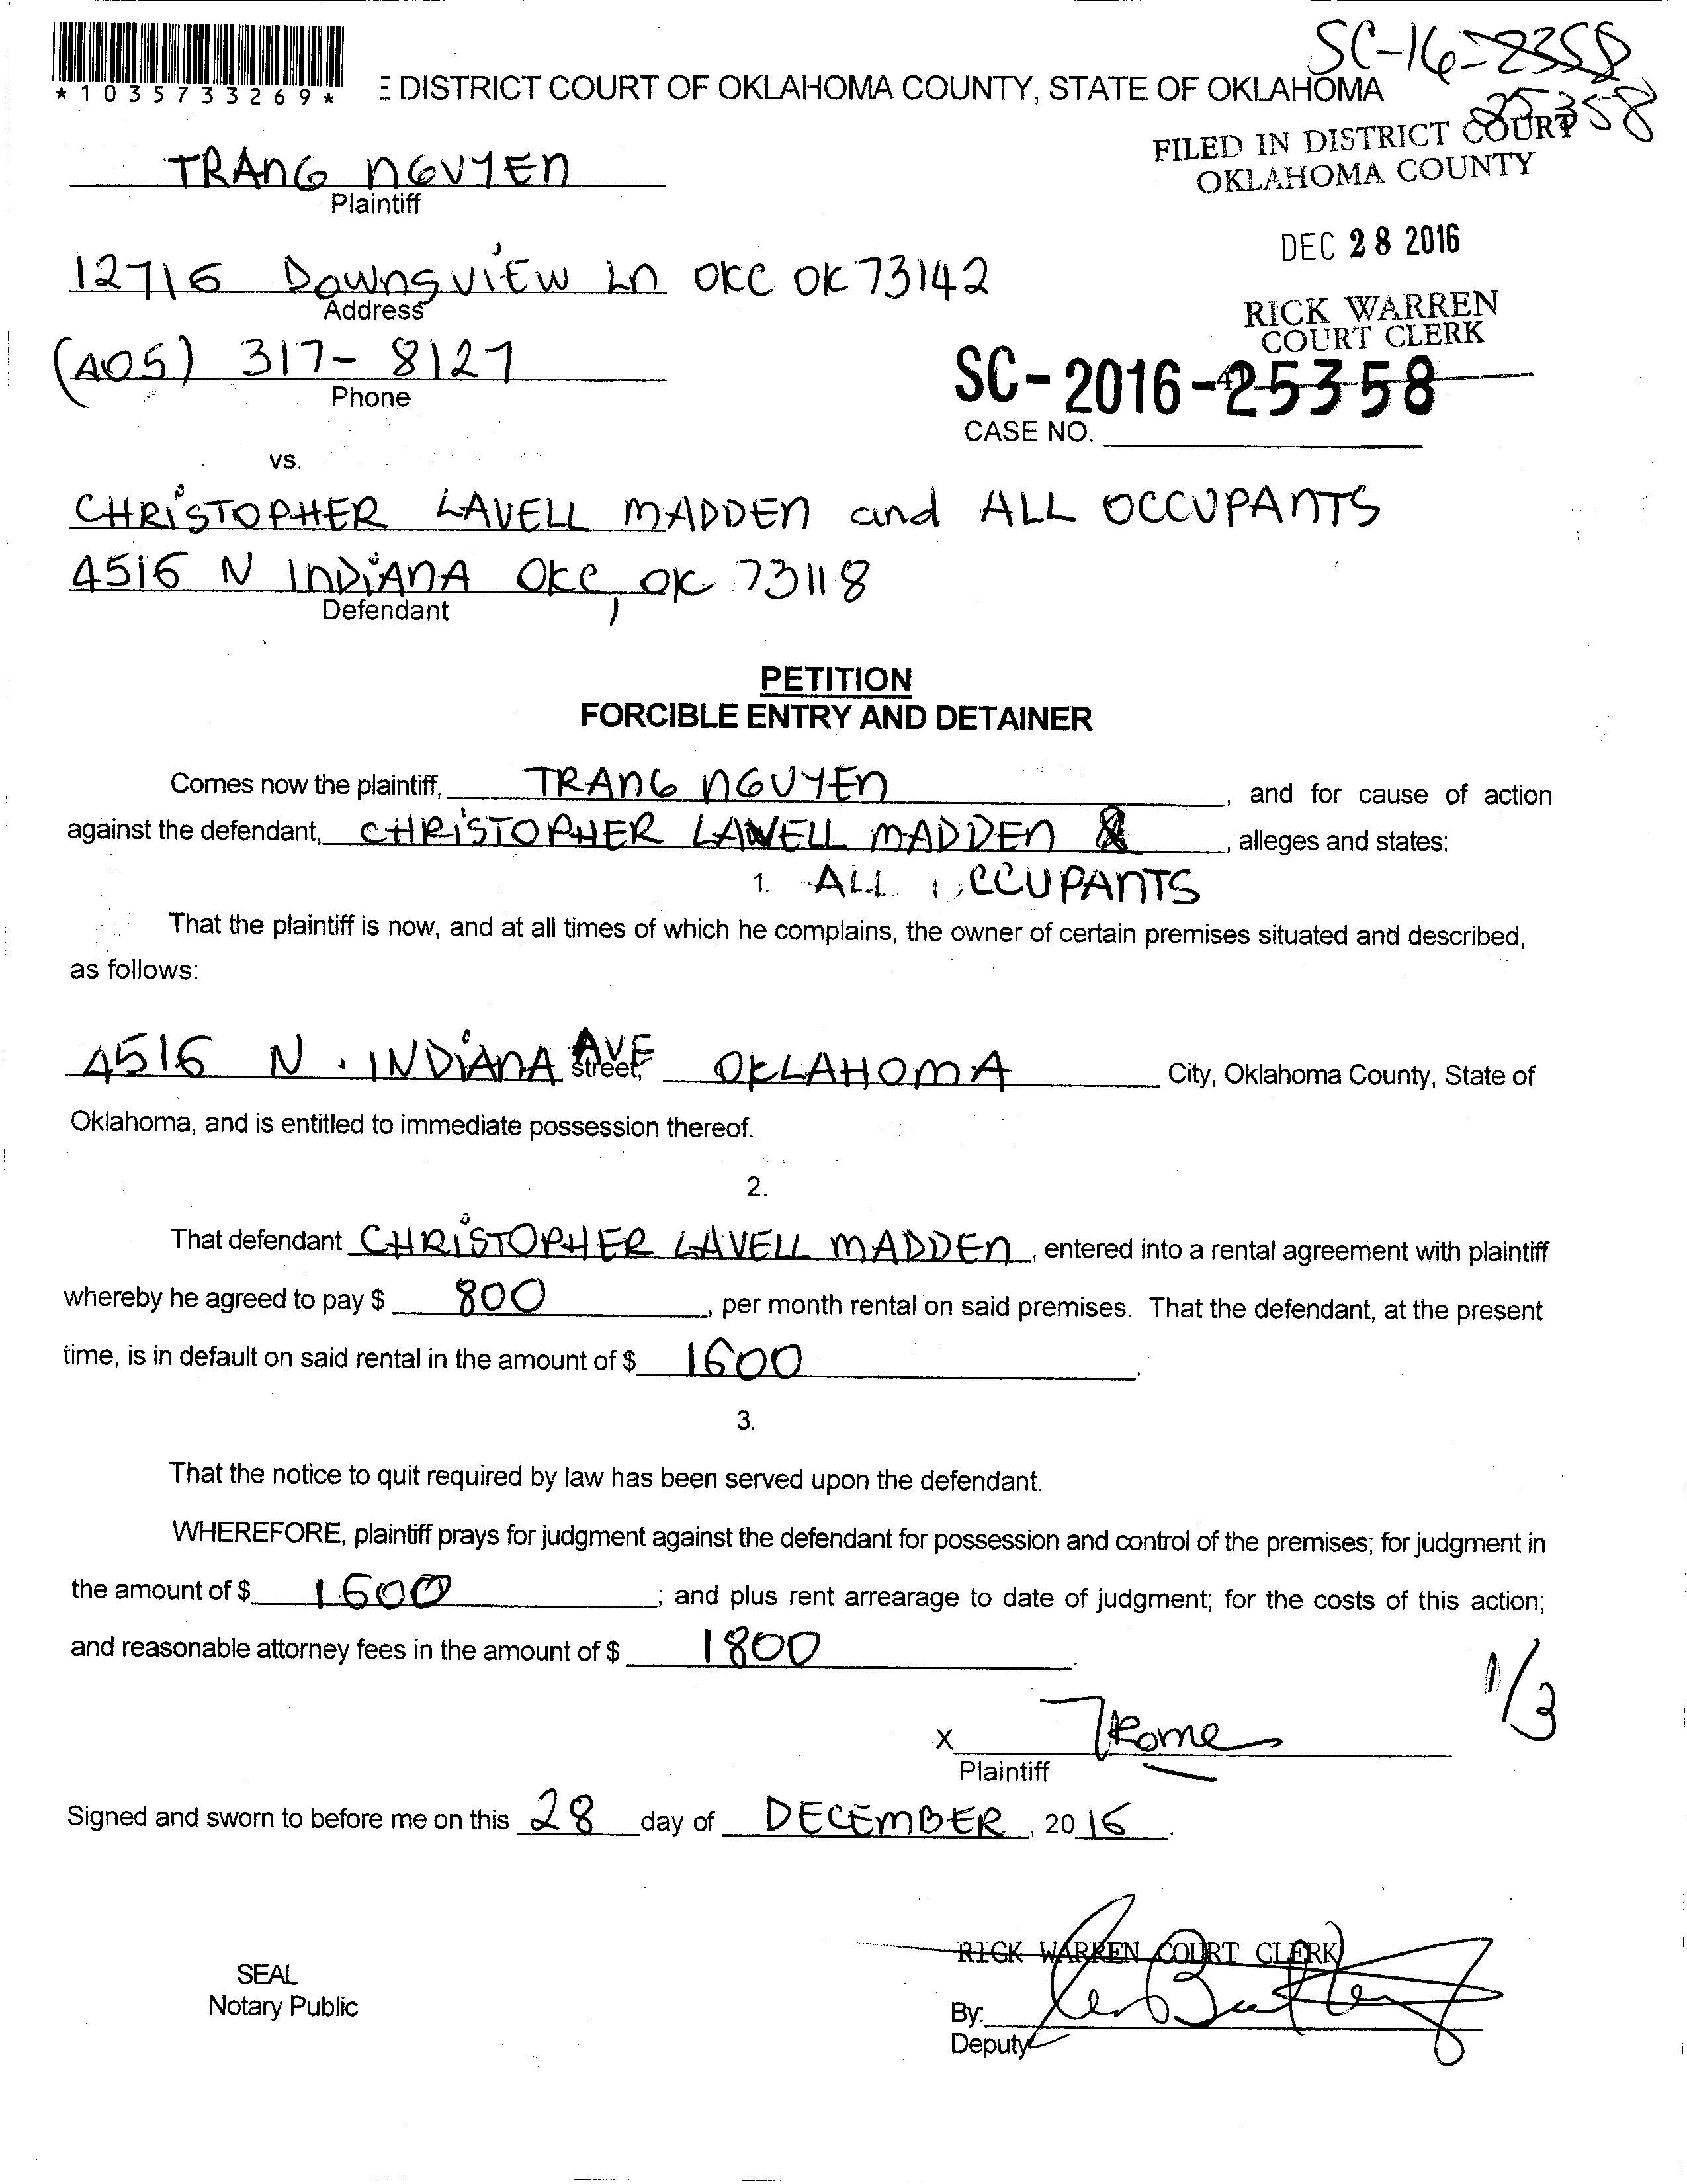 SC-16-2358
25358
*1035733269*
E DISTRICT COURT OF OKLAHOMA COUNTY, STATE OF OKLAHOMA
FILED IN DISTRICT COURT
OKLAHOMA COUNTY
TRANG NGUYEN
Plaintiff
DEC 28 2016
12716 Downsview Ln OKC OK 73142
Address
RICK WARREN
COURT CLERK
(405) 317-8127
Phone
SC-2016-25358
CASE NO.
vs.
CHRISTOPHER LAVELL MADDEN and ALL OCCUPANTS
4516 N INDIANA OKC, OK 73118
Defendant
PETITION
FORCIBLE ENTRY AND DETAINER
Comes now the plaintiff, TRANG NGUYEN, and for cause of action
against the defendant, CHRISTOPHER LAVELL MADDEN &, alleges and states:
1. ALL OCCUPANTS
That the plaintiff is now, and at all times of which he complains, the owner of certain premises situated and described,
as follows:
4516 N. INDIANA AVE street, OKLAHOMA City, Oklahoma County, State of
Oklahoma, and is entitled to immediate possession thereof.
2.
That defendant CHRISTOPHER LAVELL MADDEN, entered into a rental agreement with plaintiff
whereby he agreed to pay $ 800, per month rental on said premises. That the defendant, at the present
time, is in default on said rental in the amount of $ 1600.
3.
That the notice to quit required by law has been served upon the defendant.
WHEREFORE, plaintiff prays for judgment against the defendant for possession and control of the premises; for judgment in
the amount of $ 1600; and plus rent arrearage to date of judgment; for the costs of this action;
and reasonable attorney fees in the amount of $ 1800.
1/3
X
Plaintiff
Signed and sworn to before me on this 28 day of DECEMBER, 20 16.
RICK WARREN COURT CLERK
SEAL
Notary Public
By:
Deputy